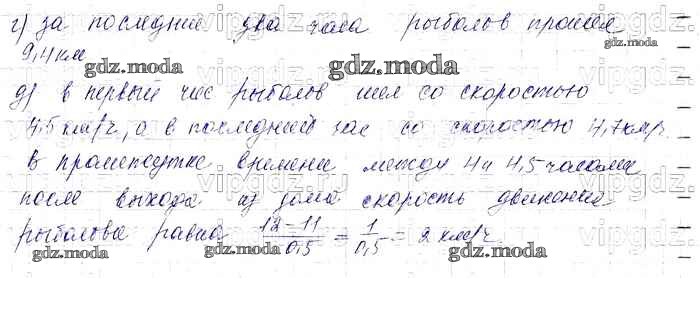 г) за последние два часа рыболов прошел
9,4 км
д) в первый час рыболов шел со скоростью
4,5 км/ч, а в последний час со скоростью 4,7 км/ч.
В промежутке времени между 4 и 4,5 часами
после выхода из дома скорость движения
рыболова равна 12-11/0,5 = 1/0,5 = 2 км/ч
gdz.moda
gdz.moda
gdz.moda
gdz.moda
gdz.moda
gdz.moda
gdz.moda